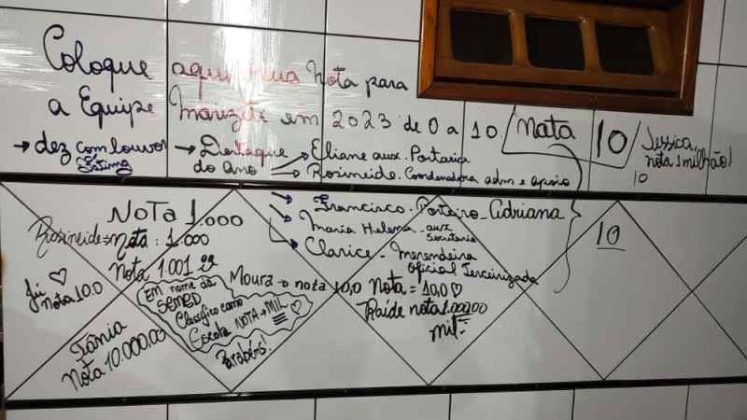 Coloque aqui sua Nota para
a Equipe Marizete em 2023 de 0 a 10 / Nota 10 / Jessica,
nota 1 milhão!
10
→ dez com louvor
Fátima
→ Destaque
do Ano
→ Eliane aux. Portaria
→ Rosineide. Coordenadora adm e apoio
→ Francisco. Porteiro _ Adriana
→ Maria Helena - aux
Secretaria
→ Clarice - Merendeira
oficial Terceirizada
10
NOTA 1.000
Rosineide = nota: 1.000
Nota 1.001
Moura → nota 10,0
Nota = 10,0
Raíde nota 1.000,00
mil
nota 10.0
Em nome da
SEMED
Classifico como
Escola NOTA → MIL
Parabéns!
Tânia
Nota 10.000.00